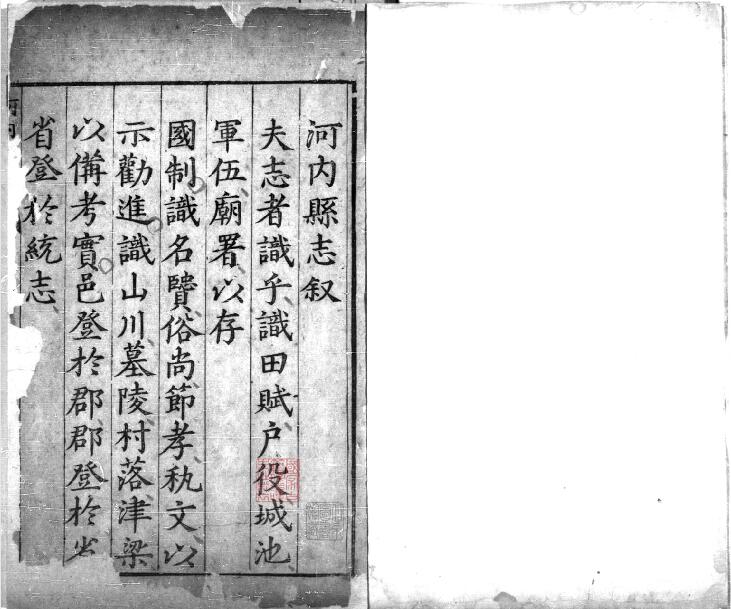 河内縣志叙
夫志者識乎識田賦户役城池
軍伍廟署以存
國制識名賢俗尚節孝秇文以
示勸進識山川墓陵村落津梁
以備考實邑登於郡郡登於省
省登於統志